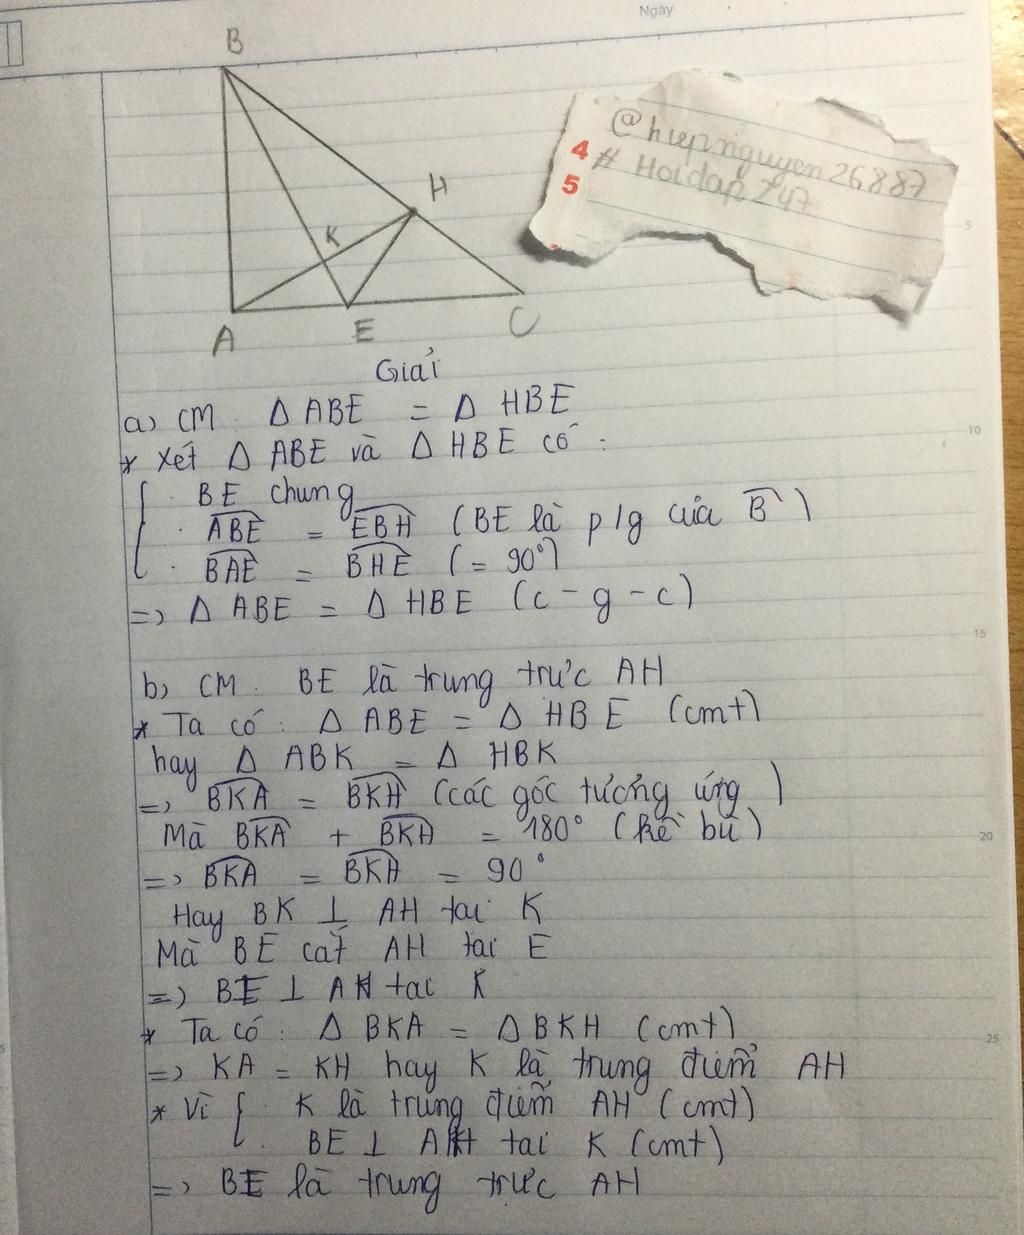 Ngày
B
@hiepnguyen26887
4 # Hoidap247
5
H
K
A
E
C
5
Giải
a) CM. Δ ABE = Δ HBE
10
* Xét Δ ABE và Δ HBE có:
· BE chung
· ABE = EBH (BE là p/g của B)
· BAE = BHE (= 90°)
=> Δ ABE = Δ HBE (c - g - c)
15
b) CM. BE là trung trực AH
* Ta có: Δ ABE = Δ HBE (cmt)
hay Δ ABK = Δ HBK
=> BKA = BKH (các góc tương ứng)
Mà BKA + BKH = 180° (kề bù)
20
=> BKA = BKH = 90°
Hay BK ⊥ AH tại K
Mà BE cắt AH tại E
=> BE ⊥ AH tại K
* Ta có: Δ BKA = Δ BKH (cmt)
25
=> KA = KH hay K là trung điểm AH
* Vì { · K là trung điểm AH (cmt)
· BE ⊥ AH tại K (cmt)
=> BE là trung trực AH